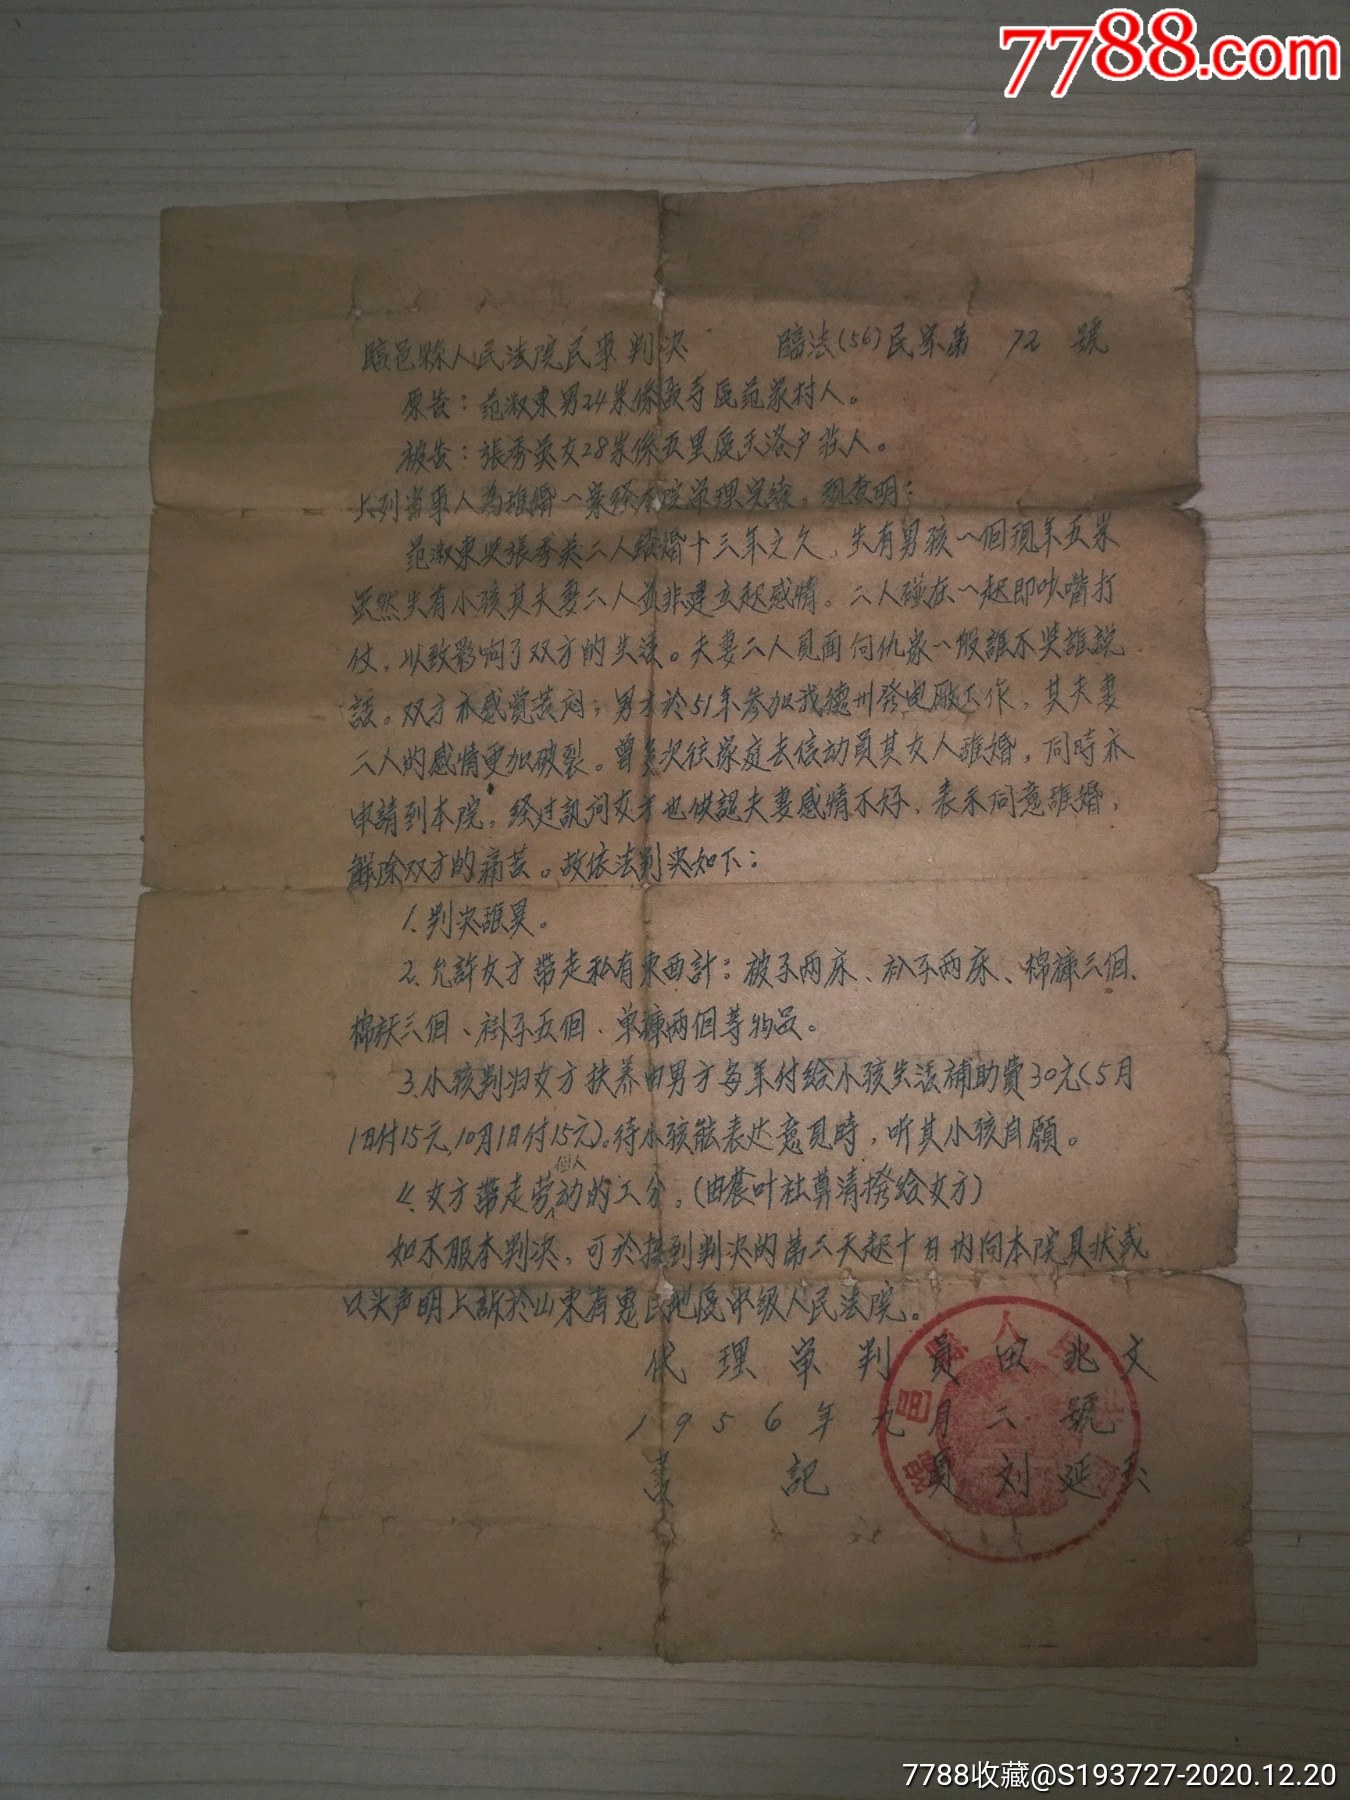 7788.com
臨邑縣人民法院民事判决　臨法(56)民字第 72 號
原告：范淑東男24岁係張寺區范家村人。
被告：張秀英女28岁係五里區天洛户莊人。
上列當事人為離婚一案經本院審理完結，現查明：
范淑東與張秀英二人結婚十三年之久，失有男孩一個現年五岁
虽然失有小孩其夫妻二人並非建立起感情。二人碰在一起即吵嘴打
仗，以致影响了双方的生活。夫妻二人見面仇家一般誰不與誰說
話。双方亦感觉苦闷；男方於51年参加我德州發电厰工作，其夫妻
二人的感情更加破裂。曾多次往家庭去信动員其女人離婚，同時亦
申請到本院，经过訊问女方也供認夫妻感情不好，表示同意離婚，
解除双方的痛苦。故依法判决如下：
1.判决離異。
2.允許女方帶走私有東西計：被子两床、褥子两床、棉褲三個、
棉袄三個、褂子五個、单褲两個等物品。
3.小孩判归女方扶养由男方每年付給小孩生活補助費30元(5月
1日付15元,10月1日付15元)。待小孩能表达意見時，听其小孩自願。
4.女方帶走劳动個人的工分，(由農叶社算清撥給女方)
如不服本判决，可於接到判决的第二天起十日内向本院具状或
口头声明上訴於山東省惠民地區中級人民法院。
代理審判員田兆文
1956年九月二號
書記員刘延玉
7788收藏@S193727-2020.12.20